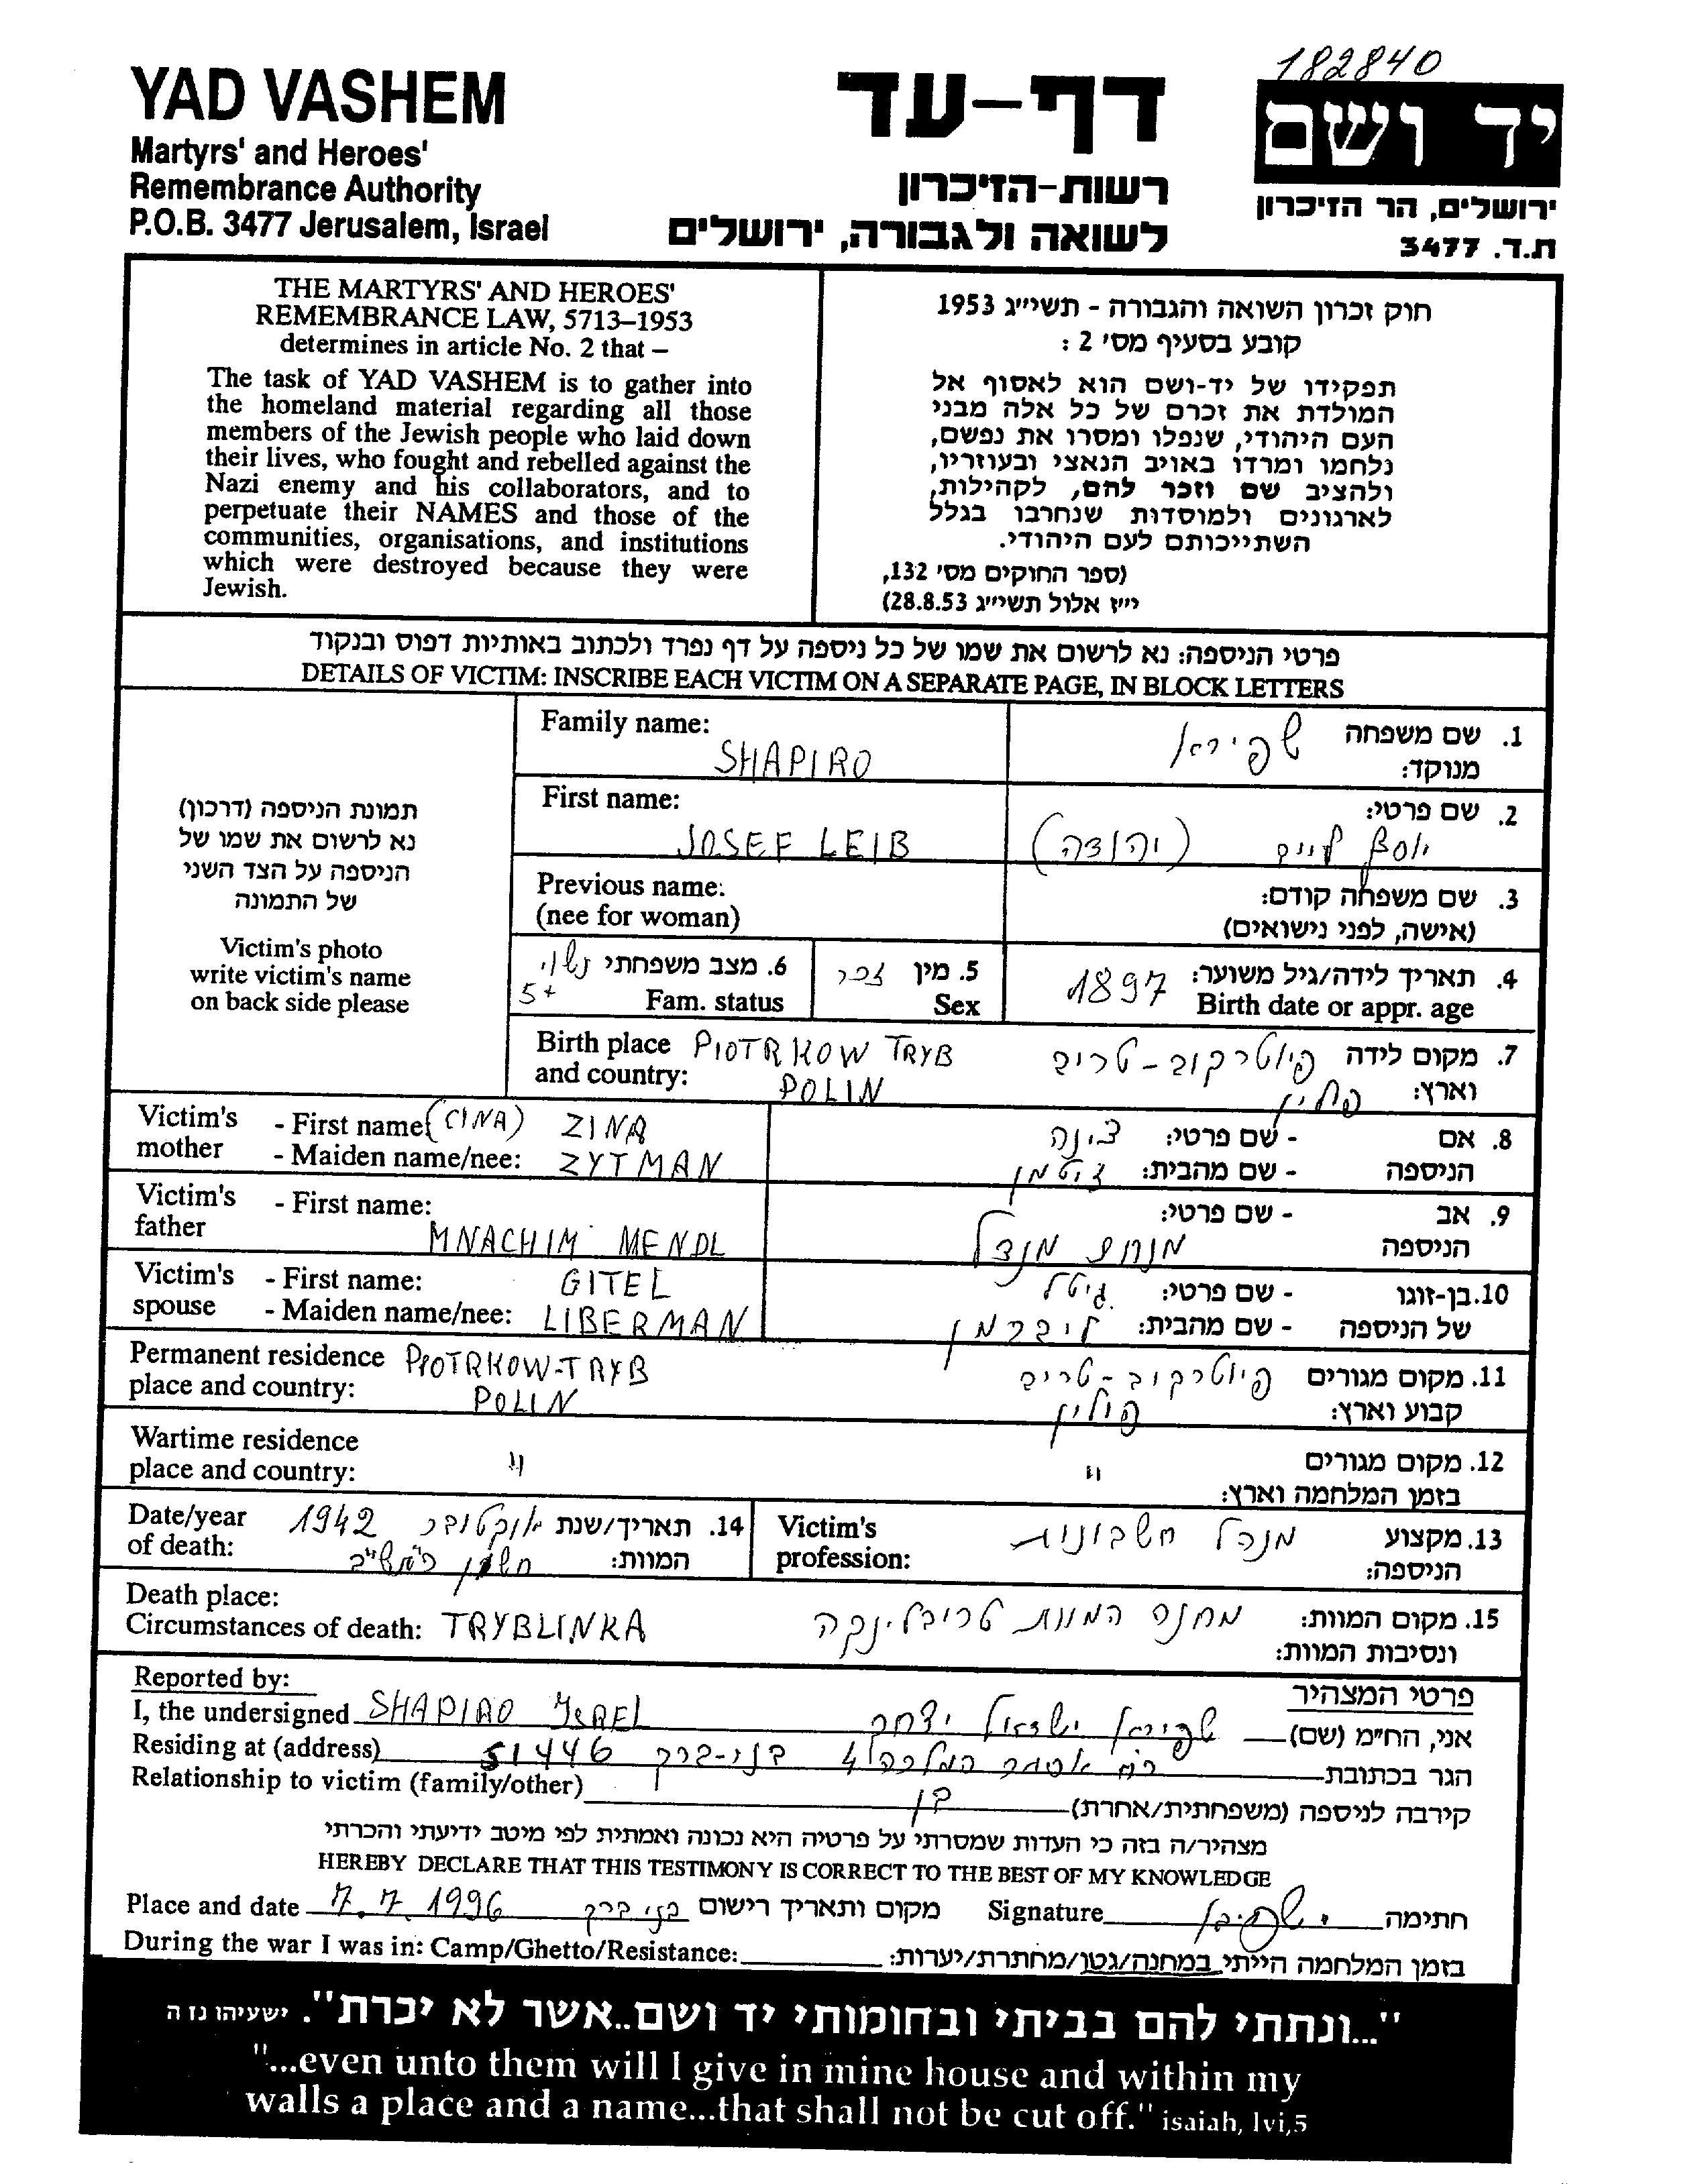 182840
YAD VASHEM
Martyrs' and Heroes'
Remembrance Authority
P.O.B. 3477 Jerusalem, Israel
דף-עד
רשות-הזיכרון
לשואה ולגבורה, ירושלים
יד ושם
ירושלים, הר הזיכרון
ת.ד. 3477
THE MARTYRS' AND HEROES'
REMEMBRANCE LAW, 5713–1953
determines in article No. 2 that –
The task of YAD VASHEM is to gather into
the homeland material regarding all those
members of the Jewish people who laid down
their lives, who fought and rebelled against the
Nazi enemy and his collaborators, and to
perpetuate their NAMES and those of the
communities, organisations, and institutions
which were destroyed because they were
Jewish.
חוק זכרון השואה והגבורה - תשי״ג 1953
קובע בסעיף מס' 2 :
תפקידו של יד-ושם הוא לאסוף אל
המולדת את זכרם של כל אלה מבני
העם היהודי, שנפלו ומסרו את נפשם,
נלחמו ומרדו באויב הנאצי ובעוזריו,
ולהציב שם וזכר להם, לקהילות,
לארגונים ולמוסדות שנחרבו בגלל
השתייכותם לעם היהודי.
(ספר החוקים מס' 132,
י״ז אלול תשי״ג 28.8.53)
פרטי הניספה: נא לרשום את שמו של כל ניספה על דף נפרד ולכתוב באותיות דפוס ובנקוד
DETAILS OF VICTIM: INSCRIBE EACH VICTIM ON A SEPARATE PAGE, IN BLOCK LETTERS
תמונת הניספה (דרכון)
נא לרשום את שמו של
הניספה על הצד השני
של התמונה
Victim's photo
write victim's name
on back side please
Family name:
SHAPIRO
1. שם משפחה שפירא
מנוקד:
First name:
JOSEF LEIB
2. שם פרטי:
יוסף לייב (יהודה)
Previous name:
(nee for woman)
3. שם משפחה קודם:
(אישה, לפני נישואים)
6. מצב משפחתי נשוי
5+ Fam. status
5. מין זכר
Sex
4. תאריך לידה/גיל משוער: 1897
Birth date or appr. age
Birth place PIOTRKOW TRYB
and country: POLIN
7. מקום לידה פיוטרקוב-טריב
וארץ: פולין
Victim's mother - First name: (CINA) ZINA
- Maiden name/nee: ZYTMAN
8. אם - שם פרטי: צינה
הניספה - שם מהבית: ציטמן
Victim's father - First name:
MNACHIM MENDL
9. אב - שם פרטי:
הניספה מנחם מנדל
Victim's spouse - First name: GITEL
- Maiden name/nee: LIBERMAN
10. בן-זוגו - שם פרטי: גיטל
של הניספה - שם מהבית: ליברמן
Permanent residence PIOTRKOW-TRYB
place and country: POLIN
11. מקום מגורים פיוטרקוב-טריב
קבוע וארץ: פולין
Wartime residence
place and country: "
12. מקום מגורים "
בזמן המלחמה וארץ:
Date/year
of death:
14. תאריך/שנת אוקטובר 1942
המוות: חשון ה'תש"ב
Victim's
profession:
13. מקצוע מנהל חשבונות
הניספה:
Death place:
Circumstances of death: TRYBLINKA
15. מקום המוות: מחנה המוות טריבלינקה
ונסיבות המוות:
Reported by:
פרטי המצהיר
I, the undersigned SHAPIRO ISREL
אני, הח״מ (שם) שפירא ישראל יצחק
Residing at (address)
הגר בכתובת רח אסתר המלכה 4 בני-ברק 51446
Relationship to victim (family/other)
קירבה לניספה (משפחתית/אחרת) בן
מצהיר/ה בזה כי העדות שמסרתי על פרטיה היא נכונה ואמתית לפי מיטב ידיעתי והכרתי
HEREBY DECLARE THAT THIS TESTIMONY IS CORRECT TO THE BEST OF MY KNOWLEDGE
Place and date 7.7.1996
מקום ותאריך רישום בני ברק
Signature
חתימה
During the war I was in: Camp/Ghetto/Resistance:
בזמן המלחמה הייתי במחנה/גטו/מחתרת/יערות:
"...ונתתי להם בביתי ובחומותי יד ושם..אשר לא יכרת". ישעיהו נז ה
"...even unto them will I give in mine house and within my
walls a place and a name...that shall not be cut off." isaiah, lvi,5